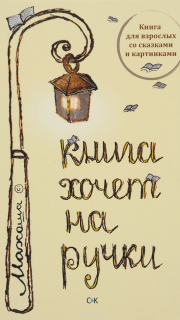 Книга
для взрослых
со сказками
и картинками
Махоша ©
книга
хочет
на
ручки
С•К